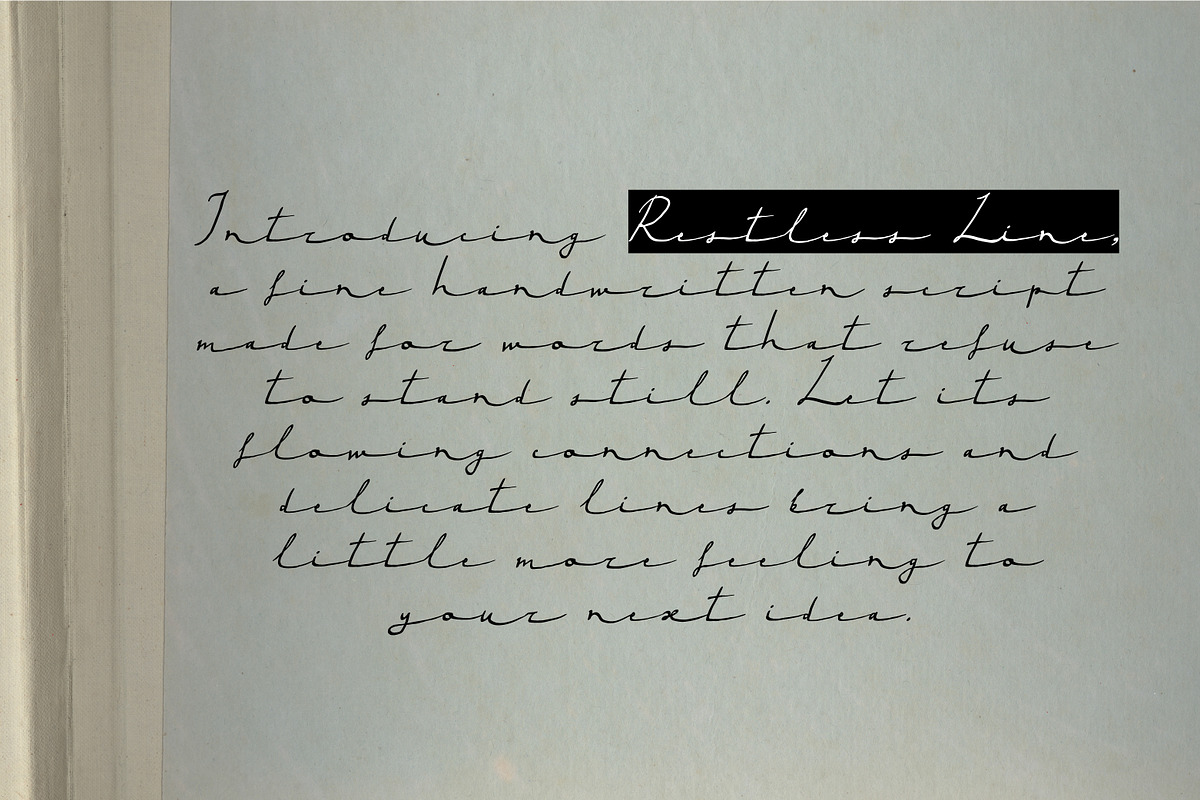 Introducing Restless Line,
a fine handwritten script
made for words that refuse
to stand still. Let its
flowing connections and
delicate lines bring a
little more feeling to
your next idea.